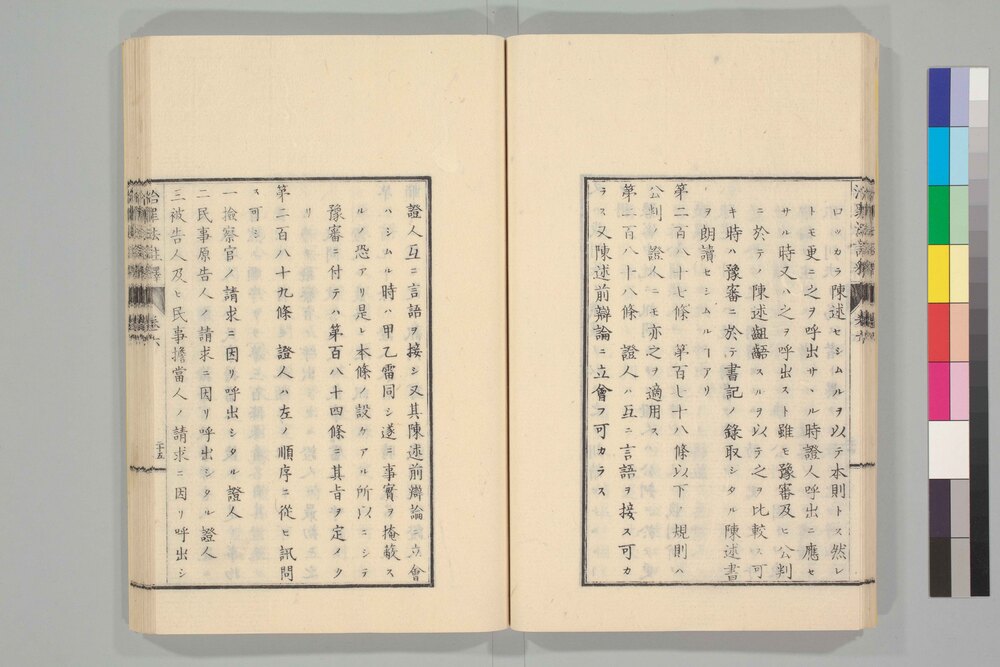 口ツカラ陳述セシムルヲ以テ本則トス然レ
トモ更ニ之ヲ呼出サヽル時證人呼出ニ應セ
サル時又ハ之ヲ呼出スト雖モ豫審及ヒ公判
ニ於テノ陳述齟齬スルヲ以テ之ヲ比較ス可
キ時ハ豫審ニ於テ書記ノ錄取シタル陳述書
ヲ朗讀セシムルヿアリ
第二百八十七條 第百七十八條以下ノ規則ハ
公判ノ證人ニモ亦之ヲ適用ス
第二百八十八條 證人ハ互ニ言語ヲ接ス可カ
ラス又陳述前辯論ニ立會フ可カラス
證人互ニ言語ヲ接シ又其陳述前辯論ニ立會
ハシムル時ハ甲乙雷同シ遂ニ事實ヲ掩蔽ス
ルノ恐アリ是レ本條ノ設ケアル所以ニシテ
豫審ニ付テハ第百八十四條ニ其旨ヲ定メタ
リ
第二百八十九條 證人ハ左ノ順序ニ從ヒ訊問
ス可シ
一 檢察官ノ請求ニ因リ呼出シタル證人
二 民事原告人ノ請求ニ因リ呼出シタル證人
三 被告人及ヒ民事擔當人ノ請求ニ因リ呼出シ
治罪法註釋 卷六 二十五